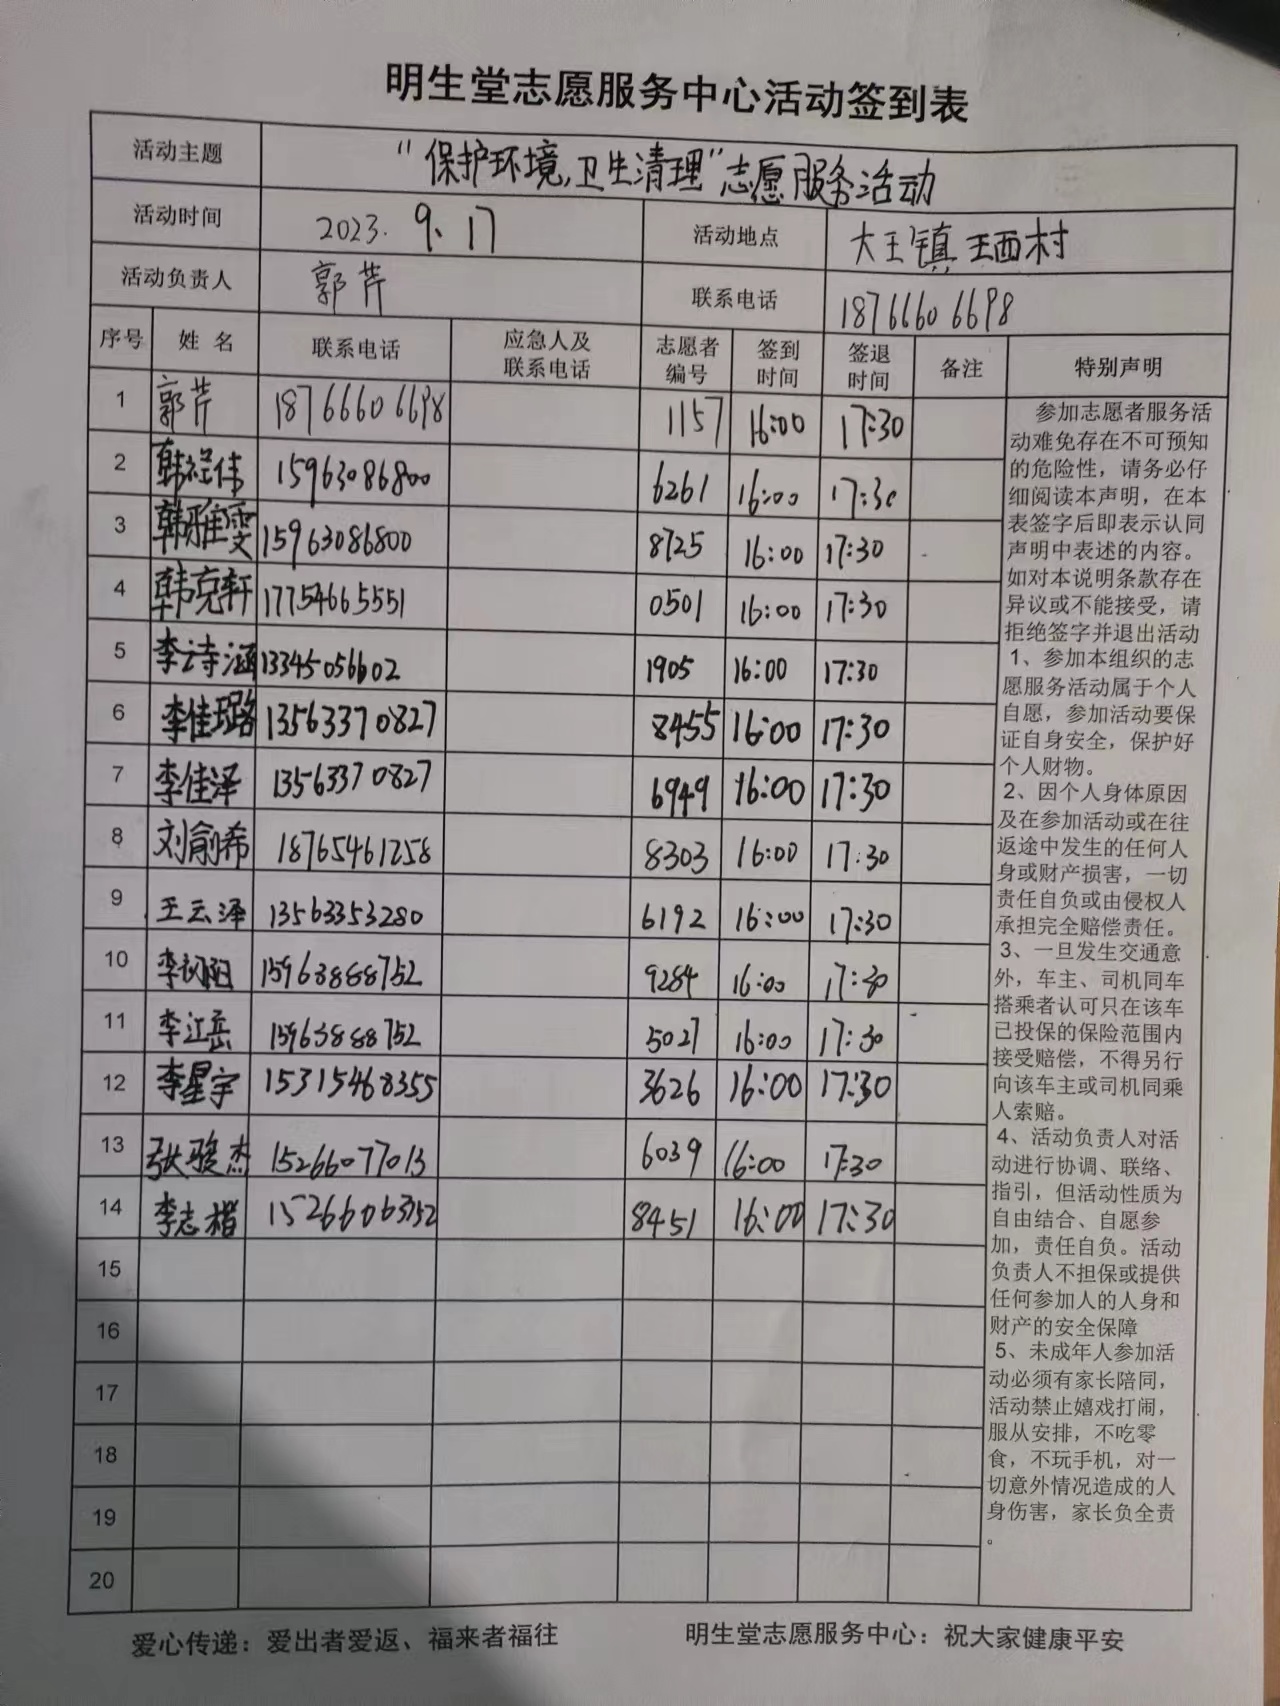 明生堂志愿服务中心活动签到表
活动主题 “保护环境,卫生清理”志愿服务活动
活动时间 2023.9.17 活动地点 大王镇王西村
活动负责人 郭芹 联系电话 18766606698
序号 姓名 联系电话 应急人及联系电话 志愿者编号 签到时间 签退时间 备注 特别声明
1 郭芹 18766606698 1157 16:00 17:30
2 15963086800 6261 16:00 17:30
3 韩雅雯 15963086800 8725 16:00 17:30
4 韩克轩 17754665551 0501 16:00 17:30
5 李诗涵 13345056602 1905 16:00 17:30
6 李佳璐 13563370827 8455 16:00 17:30
7 李佳泽 13563370827 6949 16:00 17:30
8 刘俞希 18765461258 8303 16:00 17:30
9 王云泽 13563353280 6192 16:00 17:30
10 15963888752 9284 16:00 17:30
11 李江岳 15963888752 5027 16:00 17:30
12 李星宇 15315468355 3626 16:00 17:30
13 张骏杰 15266077013 6039 16:00 17:30
14 李志楷 15266063752 8451 16:00 17:30
15
16
17
18
19
20
参加志愿者服务活
动难免存在不可预知
的危险性，请务必仔
细阅读本声明，在本
表签字后即表示认同
声明中表述的内容。
如对本说明条款存在
异议或不能接受，请
拒绝签字并退出活动
1、参加本组织的志
愿服务活动属于个人
自愿，参加活动要保
证自身安全，保护好
个人财物。
2、因个人身体原因
及在参加活动或在往
返途中发生的任何人
身或财产损害，一切
责任自负或由侵权人
承担完全赔偿责任。
3、一旦发生交通意
外，车主、司机同车
搭乘者认可只在该车
已投保的保险范围内
接受赔偿，不得另行
向该车主或司机同乘
人索赔。
4、活动负责人对活
动进行协调、联络、
指引，但活动性质为
自由结合、自愿参
加，责任自负。活动
负责人不担保或提供
任何参加人的人身和
财产的安全保障
5、未成年人参加活
动必须有家长陪同，
活动禁止嬉戏打闹，
服从安排，不吃零
食，不玩手机，对一
切意外情况造成的人
身伤害，家长负全责
。
爱心传递：爱出者爱返、福来者福往 明生堂志愿服务中心：祝大家健康平安